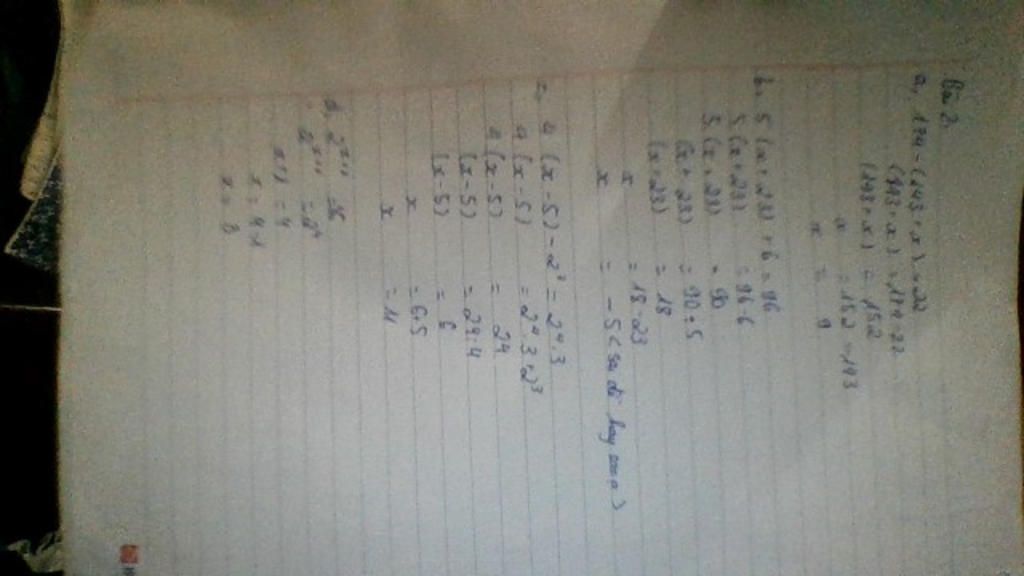 Bài 2.
a, 174 - (143 + x) = 22
(143 + x) = 174 - 22
(143 + x) = 152
x = 152 - 143
x = 9
b. 5 (x + 23) + 6 = 96
5 (x + 23) = 96 - 6
5 (x + 23) = 90
(x + 23) = 90 : 5
(x + 23) = 18
x = 18 - 23
x = - 5 (
c, 4 (x - 5) - 2³ = 2⁴ . 3
4 (x - 5) = 2⁴ . 3 + 2³
4 (x - 5) = 24
(x - 5) = 24 : 4
(x - 5) = 6
x = 6.5
x = 11
d, 2ˣ⁺¹ = 16
2ˣ⁺¹ = 2⁴
x + 1 = 4
x = 4 - 1
x = 3